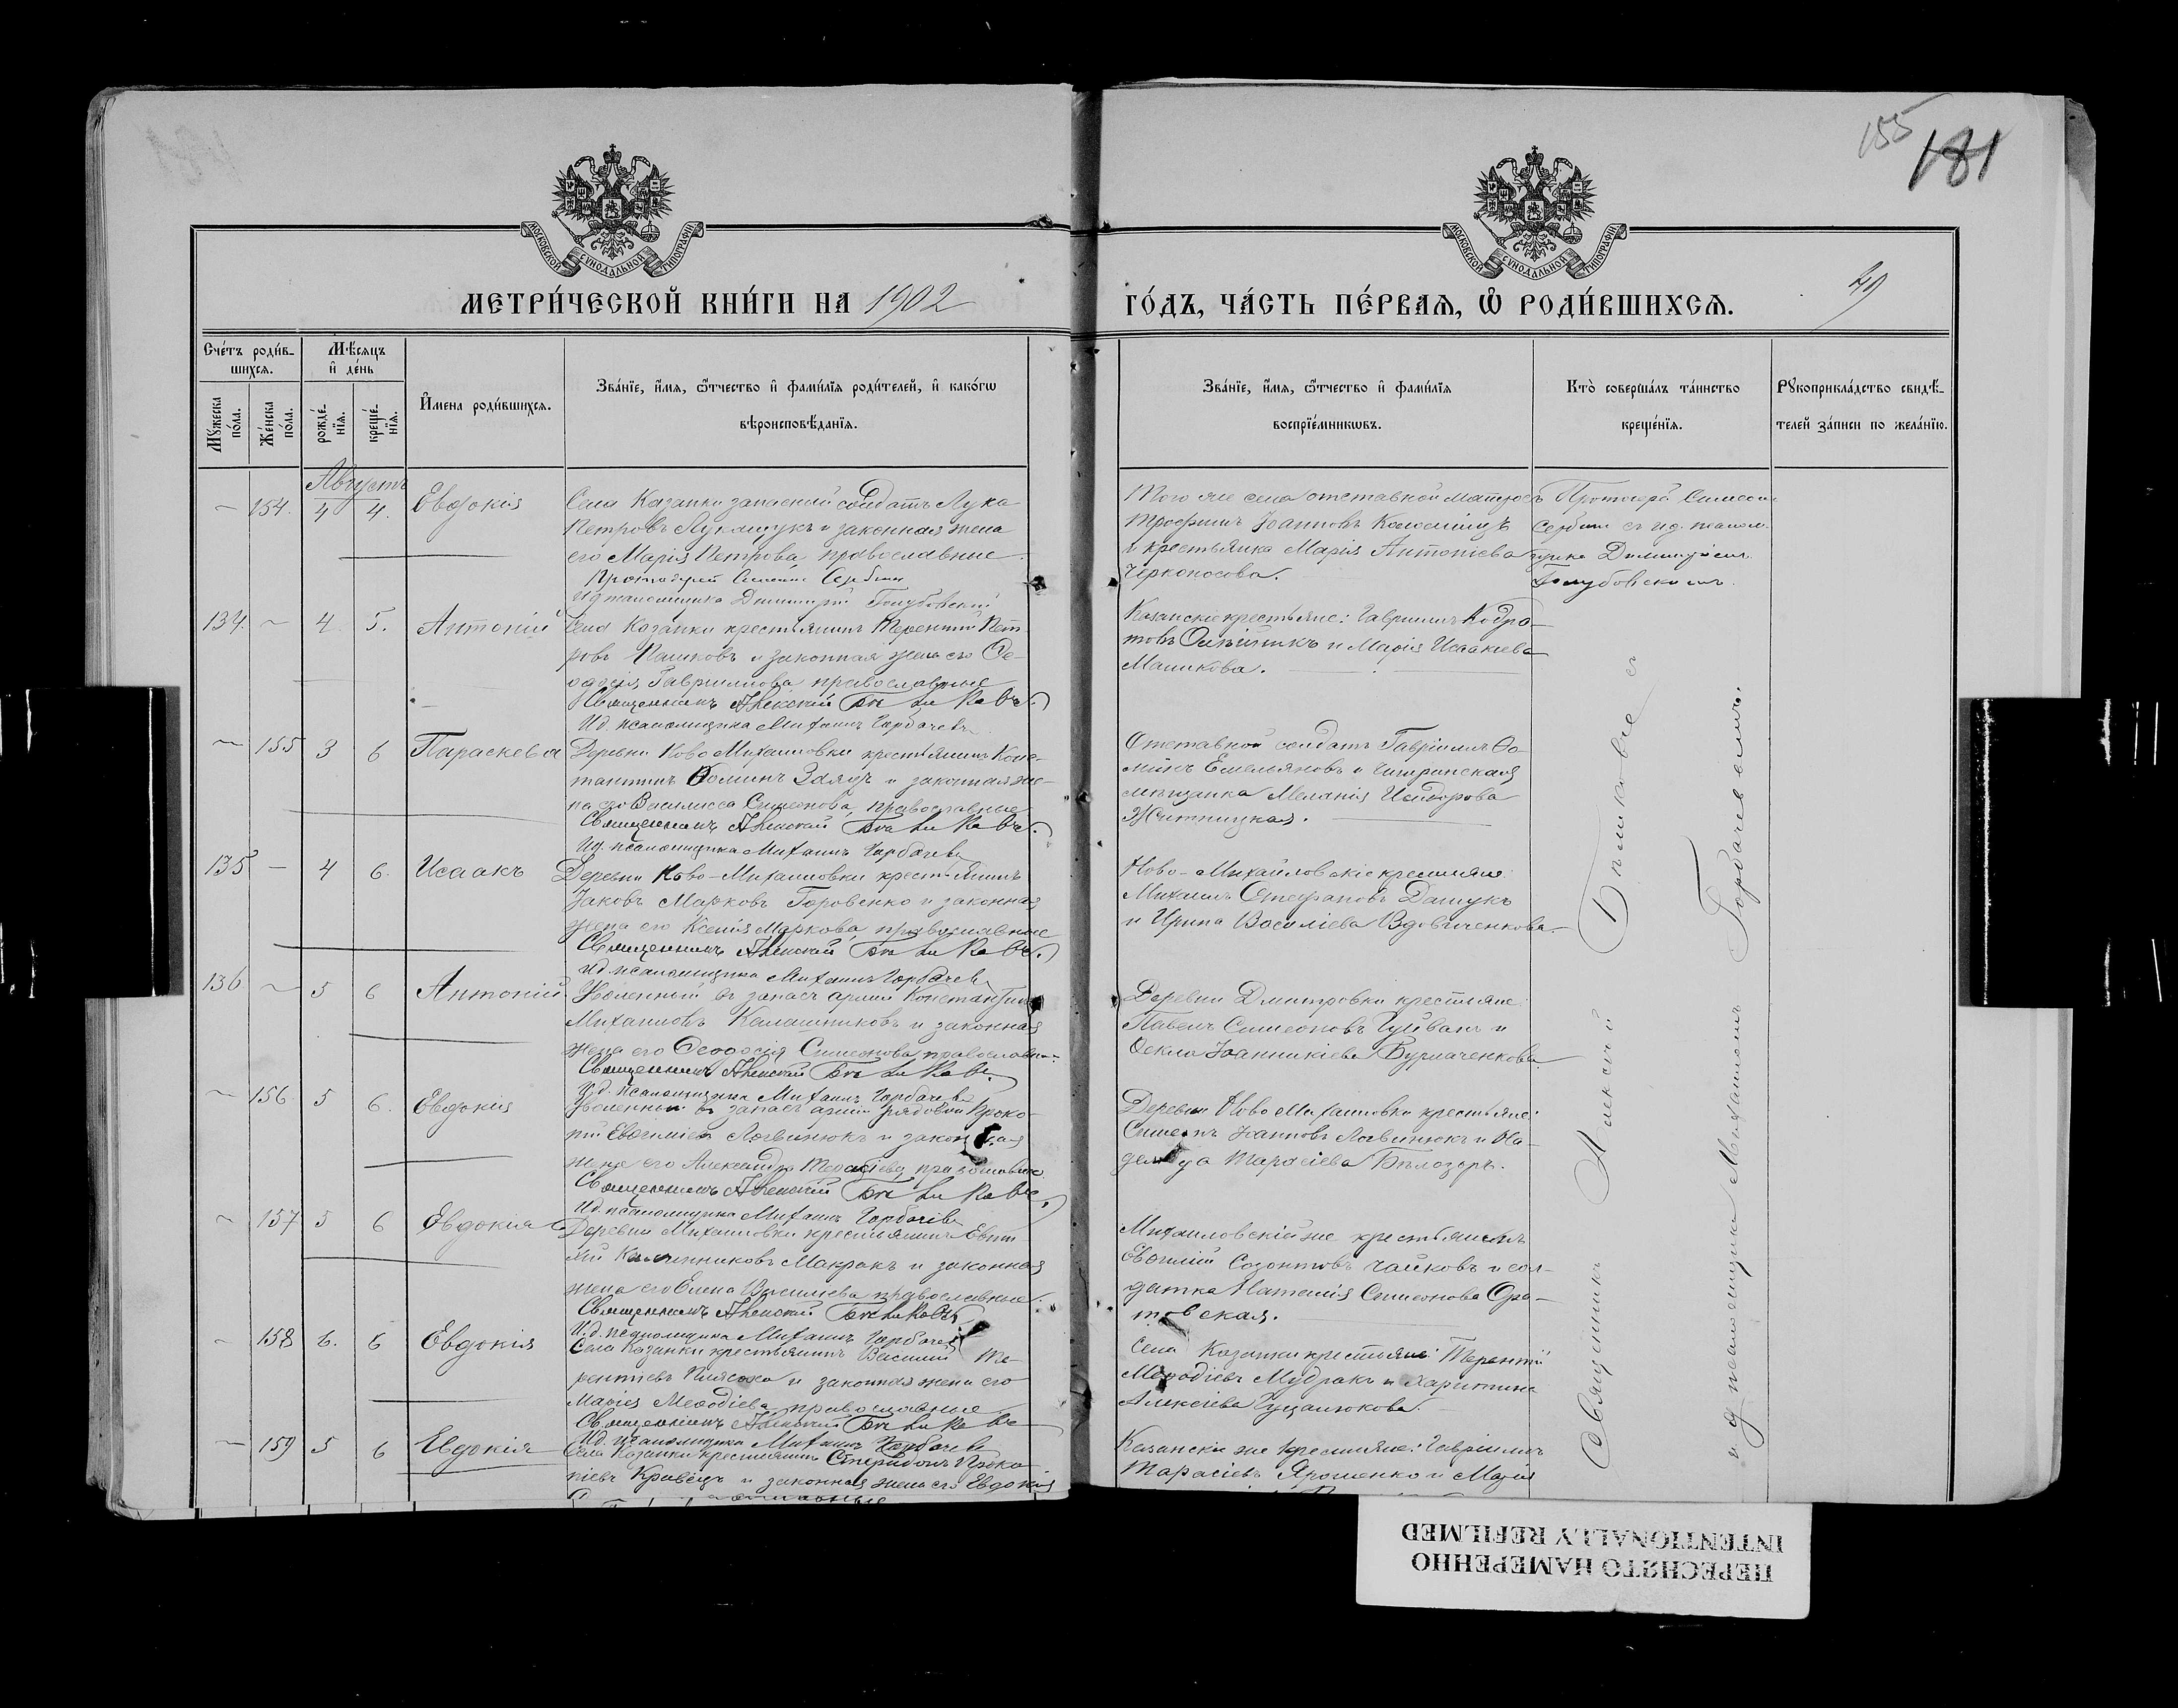 155
181
МОСКОВСКОЙ СѴНОДАЛЬНОЙ ТИПОГРАФІИ
МОСКОВСКОЙ СѴНОДАЛЬНОЙ ТИПОГРАФІИ
МЕТРИ́ЧЕСКОЙ КНИ́ГИ НА 1902
ГО́ДЪ, ЧА́СТЬ ПЕ́РВАѦ, Ѽ РОДИ́ВШИХСѦ.
Сче́тъ роди́в-
шихсѧ.
Мꙋ́жеска по́ла.
Же́нска по́ла.
Мѣ́сѧцъ
и҆ де́нь
рожде́-
нїѧ.
креще́-
нїѧ.
И҆мена роди́вшихсѧ.
Зва́нїе, и҆́мѧ, ѻ҆́тчество и҆ фами́лїѧ роди́телей, и҆ како́гѡ
вѣроисповѣ́данїѧ.
Зва́нїе, и҆́мѧ, ѻ҆́тчество и҆ фами́лїѧ
воспрїе́мникѡвъ.
Кто̀ соверша́лъ та́инство
креще́нїѧ.
Рꙋкоприкла́дство свидѣ́-
телей за́писи по жела́нїю.
Августъ
– 154. 4 4. Евдокія
Села Казанки запасный солдатъ Лука
Петровъ Лукащукъ и законная жена
его Марія Петрова, православные.
Протоіерей Симеонъ Сербинъ
Ид псаломщика Димитрій Голубовскій
Того же села отставной матросъ
Трофимъ Іоанновъ Коломіецъ
и крестьянка Марія Антоніева
Черконосова.
Протоіерей Симеонъ
Сербинъ съ и д. псалом-
щика Димитріемъ
Голубовскимъ
134. ~ 4 5. Антоній
Села Казанки крестьянинъ Терентій Пет-
ровъ и законная жена его Ѳе-
одосія Гавриилова православные
Священникъ Алексѣй Бѣликовъ
Ид. псаломщика Михаилъ Горбачевъ
Казанскіе крестьяне: Гавриилъ
Олѣйникъ и Марія Исаакіева
Машкова.
~ 155 3 6 Параскева
Деревни Ново Михайловки крестьянинъ Конс-
тантинъ Ѳоминъ и законная же-
на его Василисса Симеонова, православные
Священникъ Алексѣй Бѣликовъ.
Ид. псаломщика Михаилъ Горбачевъ
Отставной солдатъ Гавріилъ Ѳо-
минъ Емельяновъ и
мѣщанка Меланія Исидорова
Житницкая.
135 – 4 6. Исаакъ
Деревни Ново-Михайловки крестьянинъ
Іаковъ Марковъ Горовенко и законная
жена его Ксенія Маркова, православные
Священникъ Алексѣй Бѣликовъ.
Ид. псаломщика Михаилъ Горбачевъ
Ново-Михайловскіе крестьяне:
Михаилъ Стефановъ Дашукъ
и Ирина Василіева Вдовиченкова.
136 ~ 5 6 Антоній
Уволенный въ запасъ арміи Константинъ
Михаиловъ Калашниковъ и законная
жена его Ѳеодосія Симеонова православн.
Священникъ Алексѣй Бѣликовъ.
Ид. псаломщика Михаилъ Горбачевъ
Деревни Дмитровки крестьяне:
Павелъ Симеоновъ Гуйванъ и
Ѳекла Іоанникіева Бурлаченкова.
~ 156. 5 6. Евдокія
Уволенный въ запасъ арміи рядовой Проко-
пій Евѳиміевъ Логвинюкъ и законная
жена его Александра православные.
Священникъ Алексѣй Бѣликовъ.
Ид. псаломщика Михаилъ Горбачевъ
Деревни Ново Михайловки крестьяне:
Симеонъ Іоанновъ Логвинюкъ и На-
дежда Тарасіева Бѣлозоръ.
~ 157 5 6 Евдокия
Деревни Михайловки крестьянинъ
Макракъ и законная
жена его Елена Василіева православные.
Священникъ Алексѣй Бѣликовъ
И.д. псаломщика Михаилъ Горбачевъ
Михайловскій же крестьянинъ
Евѳимій Созонтовъ Чайковъ и сол-
датка Наталія Симеонова Ора-
товская.
~ 158 6. 6 Евдокія
Села Казанки крестьянинъ Василій Те-
рентіевъ и законная жена его
Марія Меѳодіева православные
Священникъ Алексѣй Бѣликовъ
Ид. псаломщика Михаилъ Горбачевъ
Села Казанки крестьяне: Терентій
Меѳодіевъ Мудракъ и Харитина
Алексіева Гуцалюкова.
~ 159 5 6 Евдокія
Села Казанки крестьянинъ Спиридонъ Проко-
піевъ Кравецъ и законная жена его Евдокія
Казанскіе же крестьяне: Гавріилъ
Тарасіевъ Ярошенко и Марія
Священникъ Алексѣй Бѣликовъ съ
и д псаломщика Михаиломъ Горбачевымъ.
ПЕРЕСНЯТО НАМЕРЕННО
INTENTIONALLY REFILMED